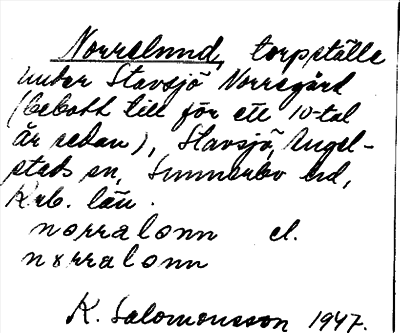 Norralund, torpställe
under Stavsjö Norregård
(bebott till för ett 10-tal
år sedan), Stavsjö, Angel-
stads sn, Sunnerbo hd,
Krb. län.
norralonn el.
norralonn
K. Salomonsson 1947.